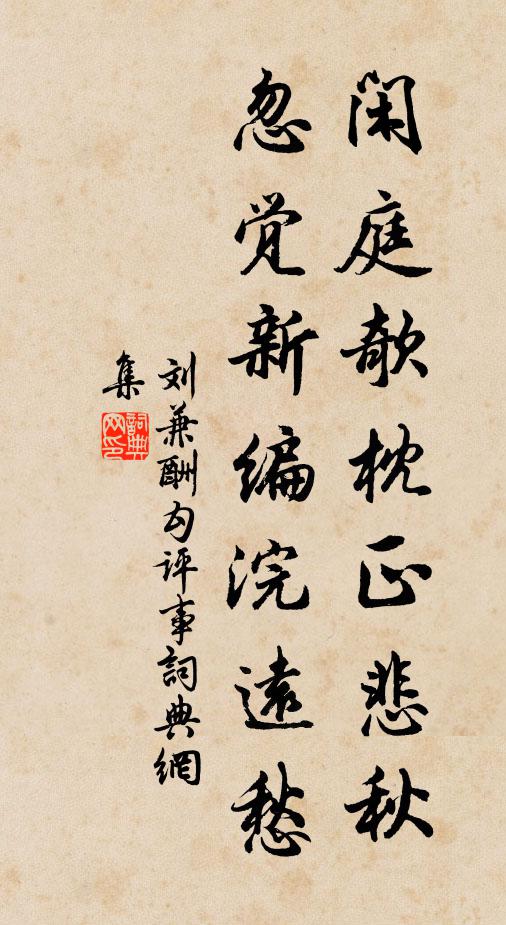 闲庭欹枕正悲秋
忽觉新编浣远愁
刘兼酬勾评事詞典網
集
詞典網印